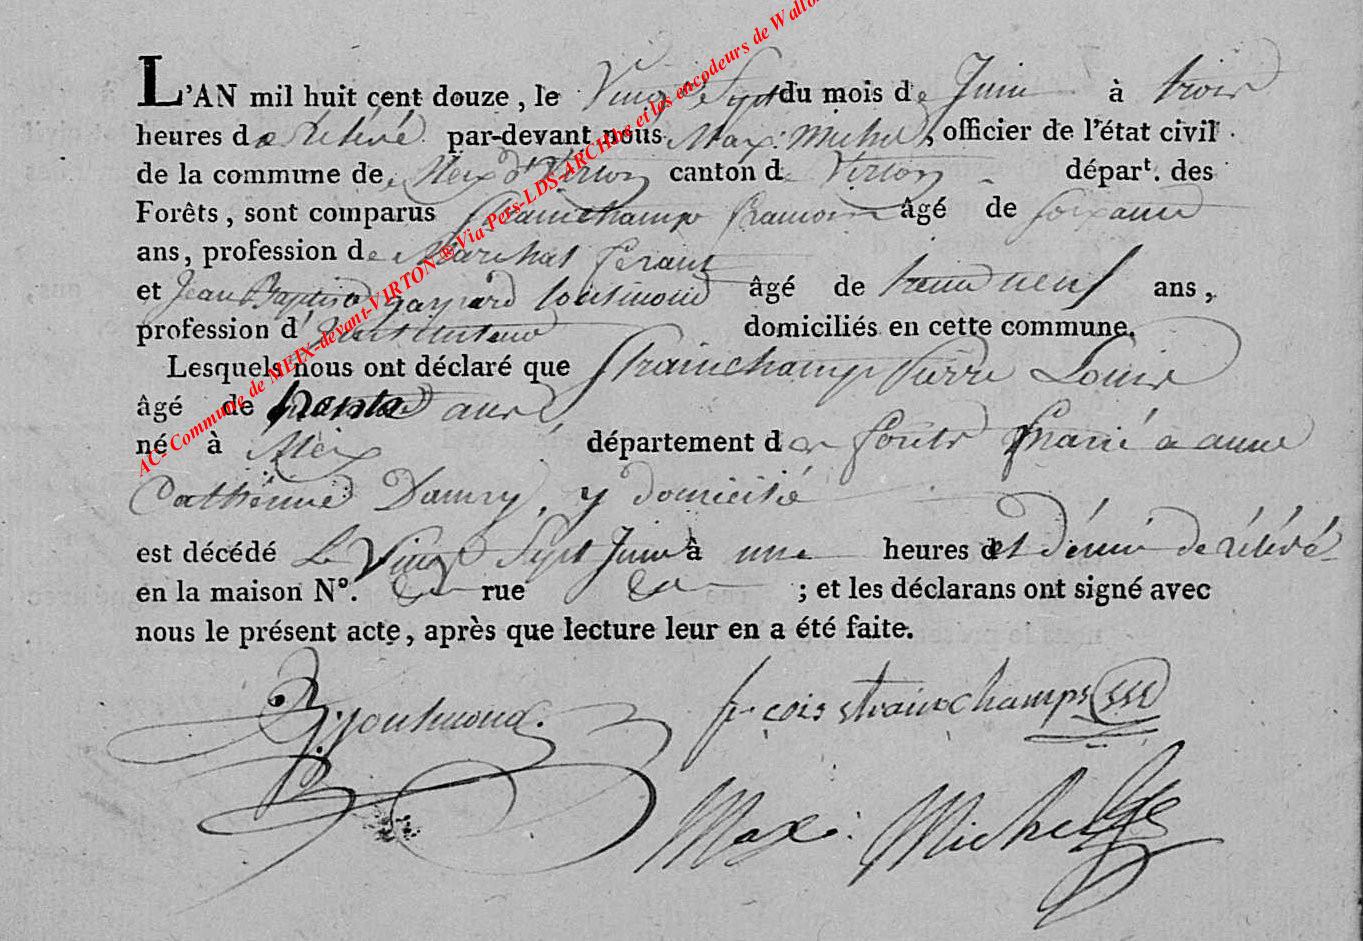 L'AN mil huit cent douze, le Vingt Sept du mois de Juin à trois
heures de Relevé par-devant nous Max: Michel, officier de l'état civil
de la commune de Meix dt Virton canton de Virton départ. des
Forêts, sont comparus Strainchamp âgé de soixante
ans, profession de Marechal ferant
et Jean Baptiste gaspard âgé de trente neuf ans,
profession d'Instituteur domiciliés en cette commune.
Lesquels nous ont déclaré que Strainchamp Pierre Louis
âgé de trente ans
né à Meix département des forêts marié a anne
Catherine y domicilié
est décédé Le Vingt Sept Juin à une heures et demie de rélévé
en la maison No. rue ; et les déclarans ont signé avec
nous le présent acte, après que lecture leur en a été faite.
frcois strainchamps
Max: Michel
AC-Commune de MEIX-devant-VIRTON ® Via Pers-LDS-ARCHbe et les encodeurs de Wallo